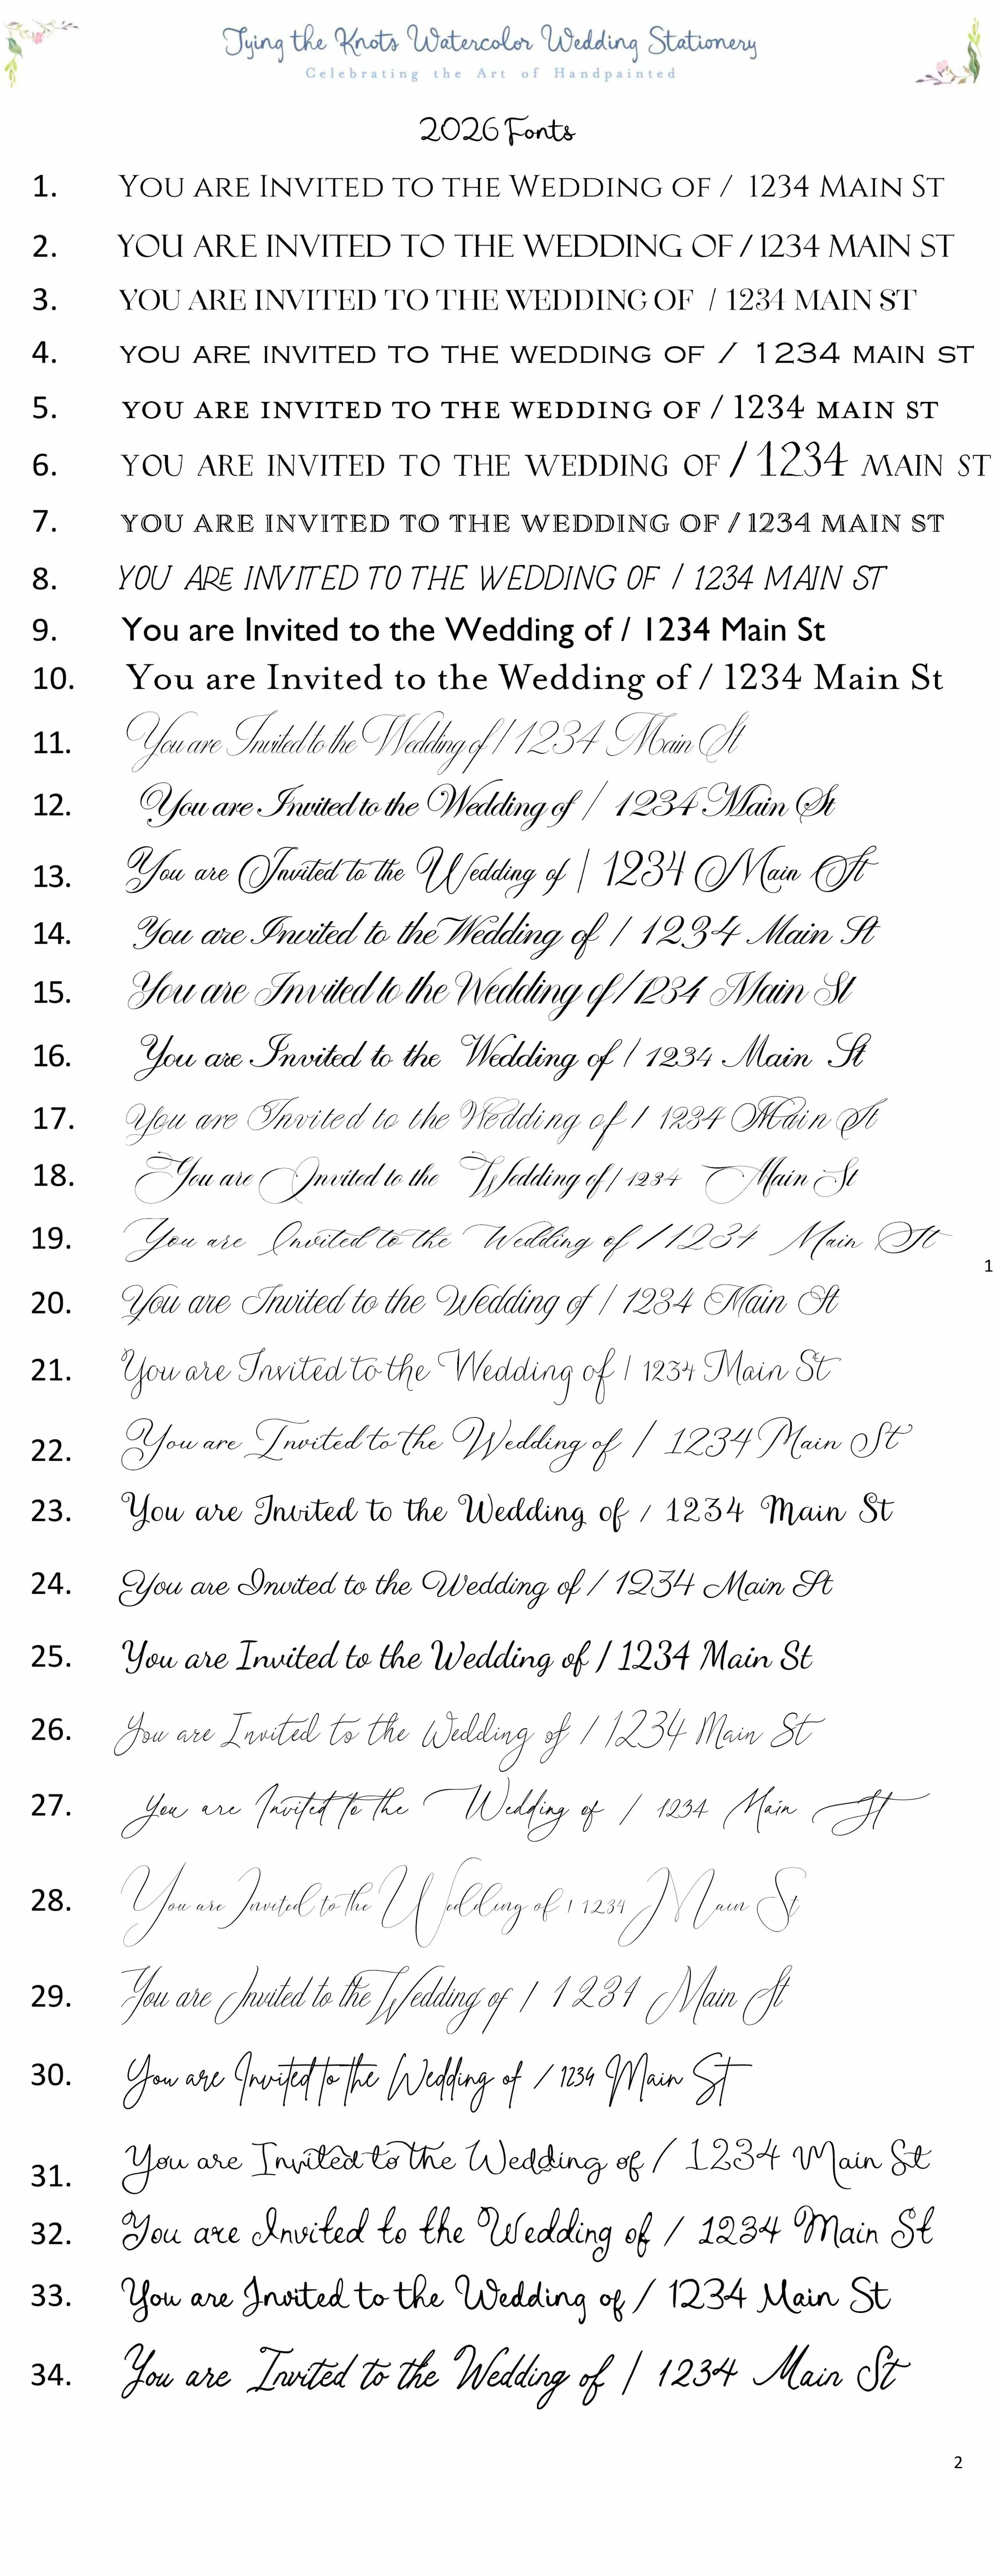 Tying the Knots Watercolor Wedding Stationery
Celebrating the Art of Handpainted
2026 Fonts
1. YOU ARE INVITED TO THE WEDDING OF / 1234 MAIN ST
2. YOU ARE INVITED TO THE WEDDING OF / 1234 MAIN ST
3. YOU ARE INVITED TO THE WEDDING OF / 1234 MAIN ST
4. YOU ARE INVITED TO THE WEDDING OF / 1234 MAIN ST
5. YOU ARE INVITED TO THE WEDDING OF / 1234 MAIN ST
6. YOU ARE INVITED TO THE WEDDING OF / 1234 MAIN ST
7. YOU ARE INVITED TO THE WEDDING OF / 1234 MAIN ST
8. YOU ARE INVITED TO THE WEDDING OF / 1234 MAIN ST
9. You are Invited to the Wedding of / 1234 Main St
10. You are Invited to the Wedding of / 1234 Main St
11. You are Invited to the Wedding of / 1234 Main St
12. You are Invited to the Wedding of / 1234 Main St
13. You are Invited to the Wedding of / 1234 Main St
14. You are Invited to the Wedding of / 1234 Main St
15. You are Invited to the Wedding of / 1234 Main St
16. You are Invited to the Wedding of / 1234 Main St
17. You are Invited to the Wedding of / 1234 Main St
18. You are Invited to the Wedding of / 1234 Main St
19. You are Invited to the Wedding of / 1234 Main St
1
20. You are Invited to the Wedding of / 1234 Main St
21. You are Invited to the Wedding of / 1234 Main St
22. You are Invited to the Wedding of / 1234 Main St
23. You are Invited to the Wedding of / 1234 Main St
24. You are Invited to the Wedding of / 1234 Main St
25. You are Invited to the Wedding of / 1234 Main St
26. You are Invited to the Wedding of / 1234 Main St
27. You are Invited to the Wedding of / 1234 Main St
28. You are Invited to the Wedding of / 1234 Main St
29. You are Invited to the Wedding of / 1234 Main St
30. You are Invited to the Wedding of / 1234 Main St
31. You are Invited to the Wedding of / 1234 Main St
32. You are Invited to the Wedding of / 1234 Main St
33. You are Invited to the Wedding of / 1234 Main St
34. You are Invited to the Wedding of / 1234 Main St
2